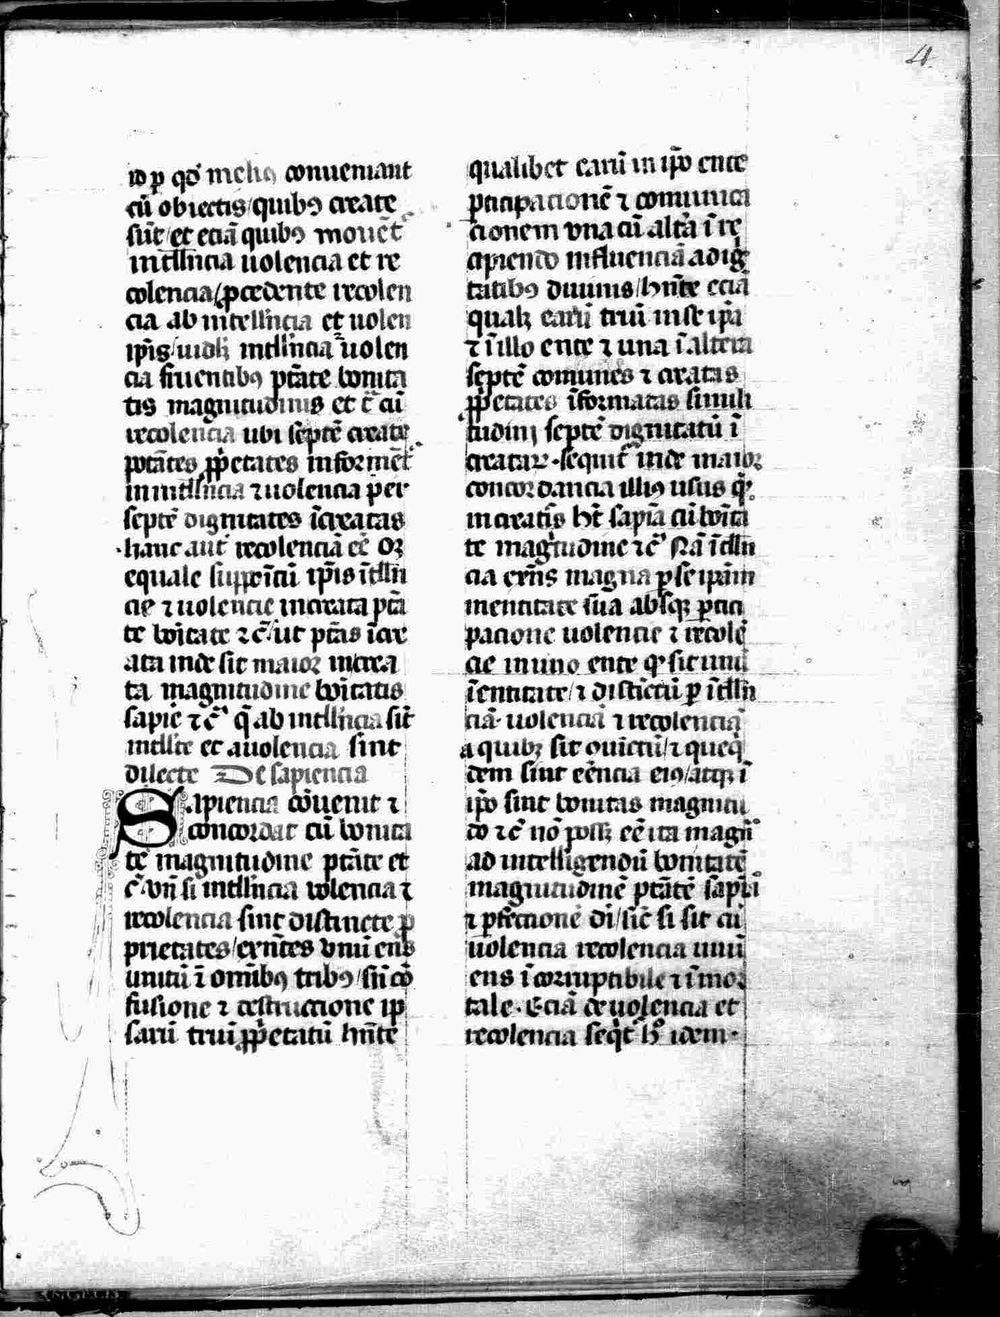 41
id ꝑ qđ meliꝰ conueniant
cū obiectis / quibꝰ create
sūt / et eciā quibꝰ mouēt
intellīncia uolencia et re
colencia / p̄cedente recolen
cia ab intellīncia et uolen
ip̄is / uidꝫ intellīncia uolen
cia fruentibꝰ ptāte bonita
tis magnitudinis et c̄ cū
recolencia ubi septē create
potātes ꝓp̄etates informēt
in intellīncia ⁊ uolencia per
septē dignitates īcreatas
hanc aut̄ recolenciā eē oꝫ
equale supp̄oītū ip̄is ītellīn
cie ⁊ uolencie increata ptā
te boītate ⁊ c̄ / ut ptās īcre
ata inde sit maior increa
ta magnitudine boītatis
sapīe ⁊ c̄ q̄ ab intellīncia sīt
intellīte et a uolencia sint
dilecte De sapiencia
Sapiencia cōuenit ⁊
concordat cū bonita
te magnitudine ptāte et
c̄. vn̄ si intellīncia uolencia ⁊
recolencia sint distincte ꝓ
prietates / ex̄ntes vnū ens
unitū ī om̄ibꝰ tribꝰ / sn̄ cō
fusione ⁊ destructione ip̄
sarū triū ꝓp̄etatū hn̄te
qualibet earū in ip̄o ente
ꝑticipacionē ⁊ comunica
cionem vna cū altā ī re
cipiendo influenciā a dig
tatibꝰ diuinis / hn̄te eciā
qualꝫ earū triū in se ip̄a
⁊ ī illo ente ⁊ una ī altera
septē comunes ⁊ creatas
ꝓp̄etates īformatas simili
tudinꝫ septē dignitatū ī
creatarꝫ. sequit̄ inde maior
concordancia illiꝰ usus q̄
increatꝭ ht̄ sapīa cū boīta
te magītudine ⁊ c̄ Nā ītellīn
cia ex̄ns magna ꝑ se ip̄am
in entitate sua absqꝫ ꝑtici
pacione uolencie ⁊ recolē
cie in uno ente q̄ sit unū
ī entitate / ⁊ distīctū ꝑ ītellīn
ciā uolenciā ⁊ recolenciā
a quibꝫ sit ouictū / ⁊ queq̄
dem sint eēncia eiꝰ / atqꝫ ī
ip̄o sint bonitas magnitu
do ⁊ c̄ nō possꝫ eē ita magn̄
ad intelligendū bonitatē
magnitudinē ptātē sapīa
⁊ ꝑfectionē di / sīc si sit cū
uolencia recolencia unū
ens īcorruptibile ⁊ īmor
tale. Eciā de uolencia et
recolencia seqīt hͦ idem.